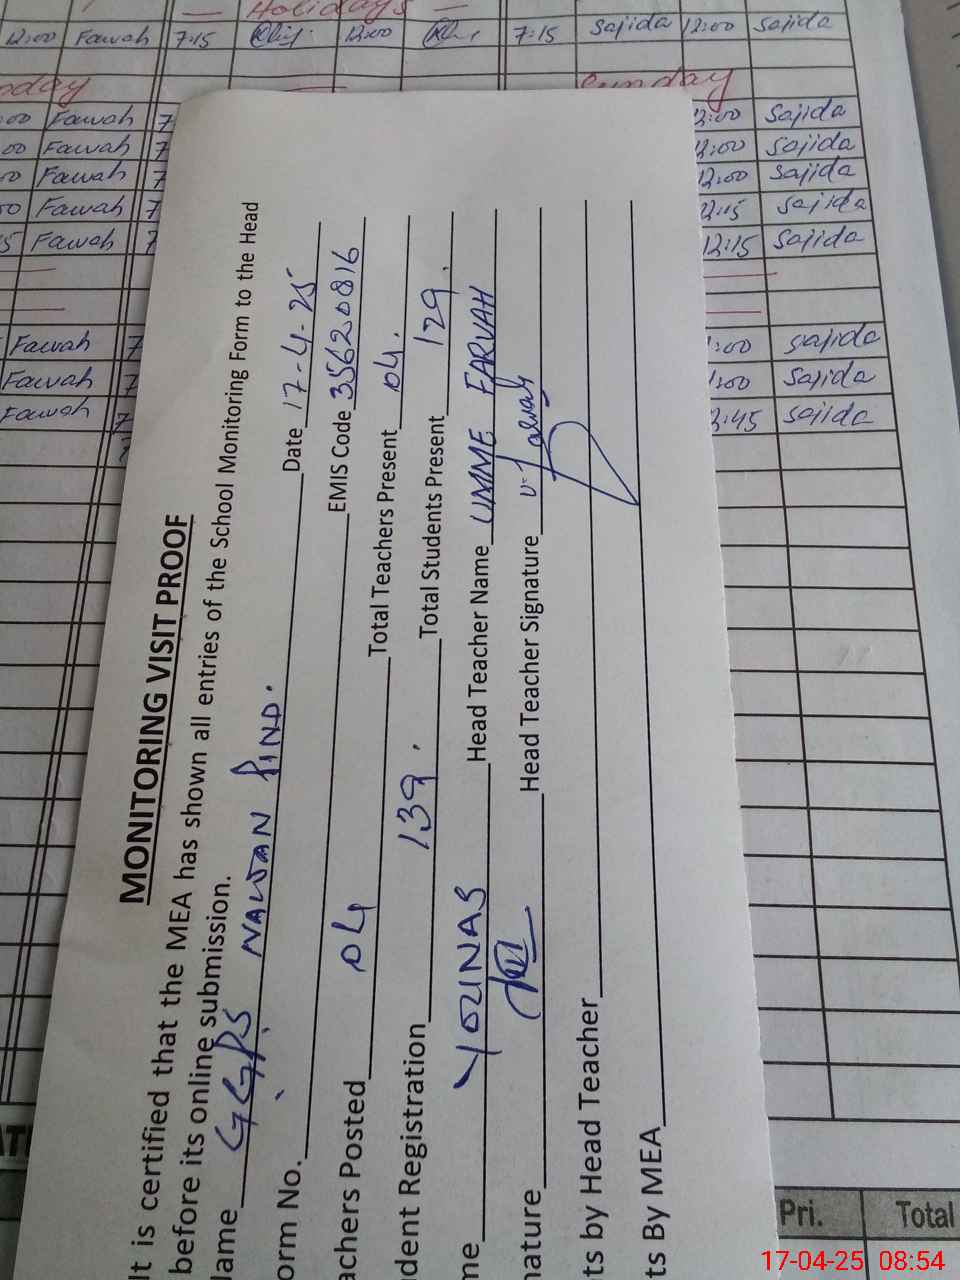 Holidays
12:00 Fawah 7:15 12:00 7:15 Sajida 12:00 Sajida
nday Sunday
:00 Fawah 7 12:00 Sajida
00 Fawah 7 12:00 Sajida
00 Fawah 7 12:00 Sajida
00 Fawah 7 12:15 Sajida
15 Fawah 7 12:15 Sajida
Fawah 7 :00 Sajida
Fawah 7 1:00 Sajida
Fawah 7 2:45 Sajida
MONITORING VISIT PROOF
It is certified that the MEA has shown all entries of the School Monitoring Form to the Head
before its online submission.
lame GGPS NAWAN PIND. Date 17-4-25
orm No. EMIS Code 35620816
achers Posted 04 Total Teachers Present 04.
dent Registration 139. Total Students Present 129.
me Head Teacher Name UMME FARVAH
nature Head Teacher Signature
ts by Head Teacher
ts By MEA
Pri. Total
17-04-25 08:54